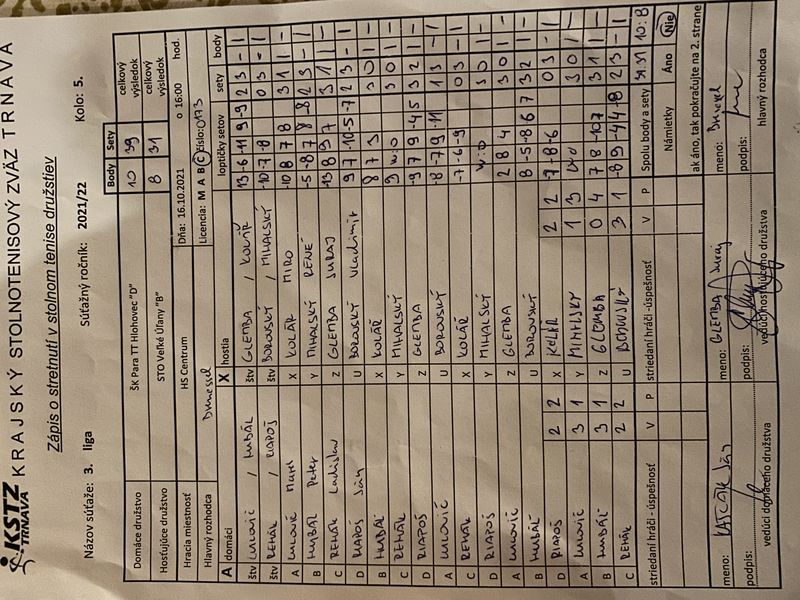 KSTZ TRNAVA KRAJSKÝ STOLNOTENISOVÝ ZVÄZ TRNAVA
Zápis o stretnutí v stolnom tenise družstiev
Názov súťaže: 3. liga Súťažný ročník: 2021/22 Kolo: 5.
Body Sety celkový výsledok
Domáce družstvo ŠK Para TT Hlohovec "D" 10 39
Hosťujúce družstvo STO Veľké Úľany "B" 8 31 celkový výsledok
Hracia miestnosť HS Centrum Dňa: 16.10.2021 o 16:00 hod.
Hlavný rozhodca Licencia: M A B C číslo: 0173
A domáci X hostia loptičky setov sety body
štv / HUBÁL štv GLEMBA / KOLÁŘ 13 -6 -11 9 -9 2 3 - 1
štv REHÁK / RIAPOŠ štv BOROVSKÝ / MIHALSKÝ -10 -7 -8 0 3 - 1
A X KOLÁŘ MIRO -10 8 7 8 3 1 1 -
B HUBÁL Peter Y MIHALSKÝ RENÉ -5 -8 7 8 -8 2 3 - 1
C REHÁK Ladislav Z GLEMBA JURAJ
D RIAPOŠ Ján U BOROVSKÝ Vladimír 9 7 -10 -5 -7 2 3 - 1
B HUBÁL X KOLÁŘ 8 7 3 3 0 1 -
C REHÁK Y MIHALSKÝ 9 w.o 3 0 1 -
D RIAPOŠ Z GLEMBA -9 7 9 -4 5 3 2 1 -
A U BOROVSKÝ -8 -7 9 -11 1 3 - 1
C REHÁK X KOLÁŘ -7 -6 -9 0 3 - 1
D RIAPOŠ Y MIHALSKÝ w.o 3 0 1 -
A Z GLEMBA 2 8 4 3 0 1 -
B HUBÁL U BOROVSKÝ 8 -5 -8 6 7 3 2 1 -
D RIAPOŠ 2 2 X KOLÁŘ 2 2 -7 -8 -6 0 3 - 1
A 3 1 Y MIHALSKÝ 1 3 w.o 3 0 1 -
B HUBÁL 3 1 Z GLEMBA 0 4 7 8 -10 7 3 1 1 -
C REHÁK 2 2 U BOROVSKÝ 3 1 -8 9 -4 4 -8 2 3 - 1
striedaní hráči - úspešnosť V P striedaní hráči -úspešnosť V P Spolu body a sety 10:8
Námietky Áno Nie
ak áno, tak pokračujte na 2. strane
meno: Ján meno: GLEMBA Juraj meno:
podpis: podpis: podpis:
vedúci domáceho družstva vedúci hosťujúceho družstva hlavný rozhodca